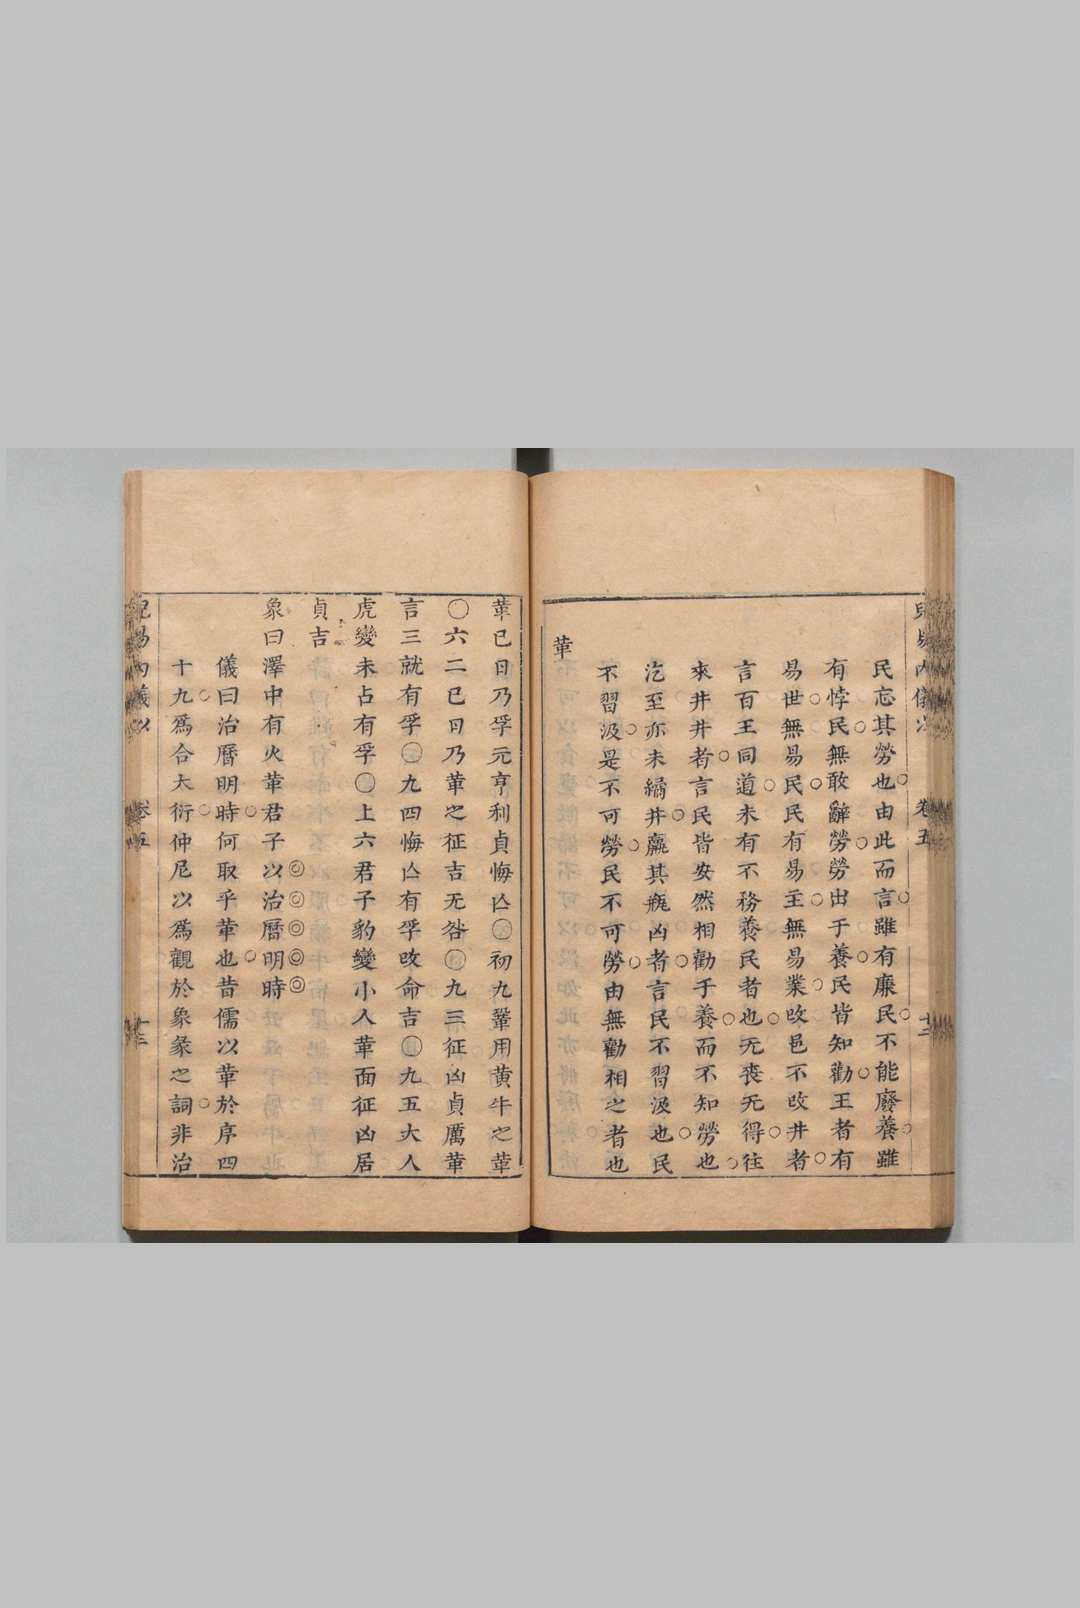 兒易內儀以 卷五 十二
民忘其勞也由此而言雖有廉民不能廢養雖
有悖民無敢辭勞勞出于養民皆知勸王者有
易世無易民民有易主無易業改邑不改井者
言百王同道未有不務養民者也无喪无得往
來井井者言民皆安然相勸于養而不知勞也
汔至亦未繘井羸其瓶凶者言民不習汲也民
不習汲是不可勞民不可勞由無勸相之者也
革
革已日乃孚元亨利貞悔亡〇初九鞏用黃牛之革
〇六二已日乃革之征吉无咎〇九三征凶貞厲革
言三就有孚〇九四悔亾有孚改命吉〇九五大人
虎變未占有孚〇上六君子豹變小人革面征凶居
貞吉
象曰澤中有火革君子以治曆明時
儀曰治曆明時何取乎革也昔儒以革於序四
十九為合大衍仲尼以為觀於象彖之詞非治
兒易內儀以 卷五 十三